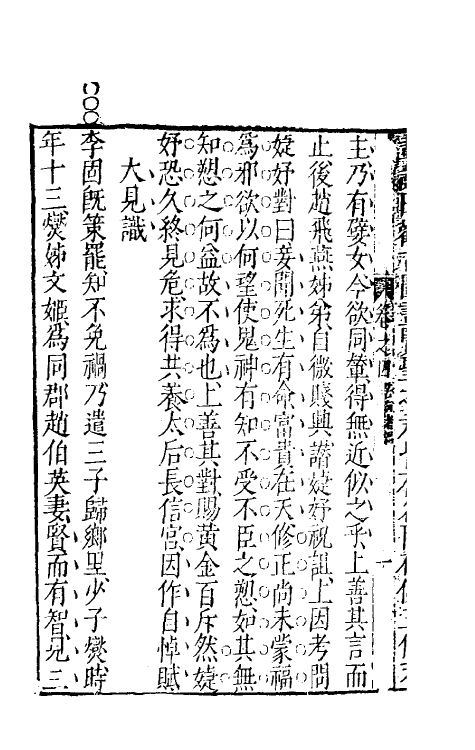 主乃有嬖女今欲同輦得無近似之乎上善其言而
止後趙飛燕姊弟自微賤興譖婕妤祝詛上因考問
婕妤對曰妾聞死生有命富貴在天修正尚未蒙福
為邪欲以何望使鬼神有知不受不臣之愬如其無
知愬之何益故不為也上善其對賜黃金百斤然婕
妤恐久終見危求得共養太后長信宮因作自悼賦
大見識
李固既策罷知不免禍乃遣三子歸鄉里少子燮時
年十三燮姊文姬為同郡趙伯英妻賢而有智見三